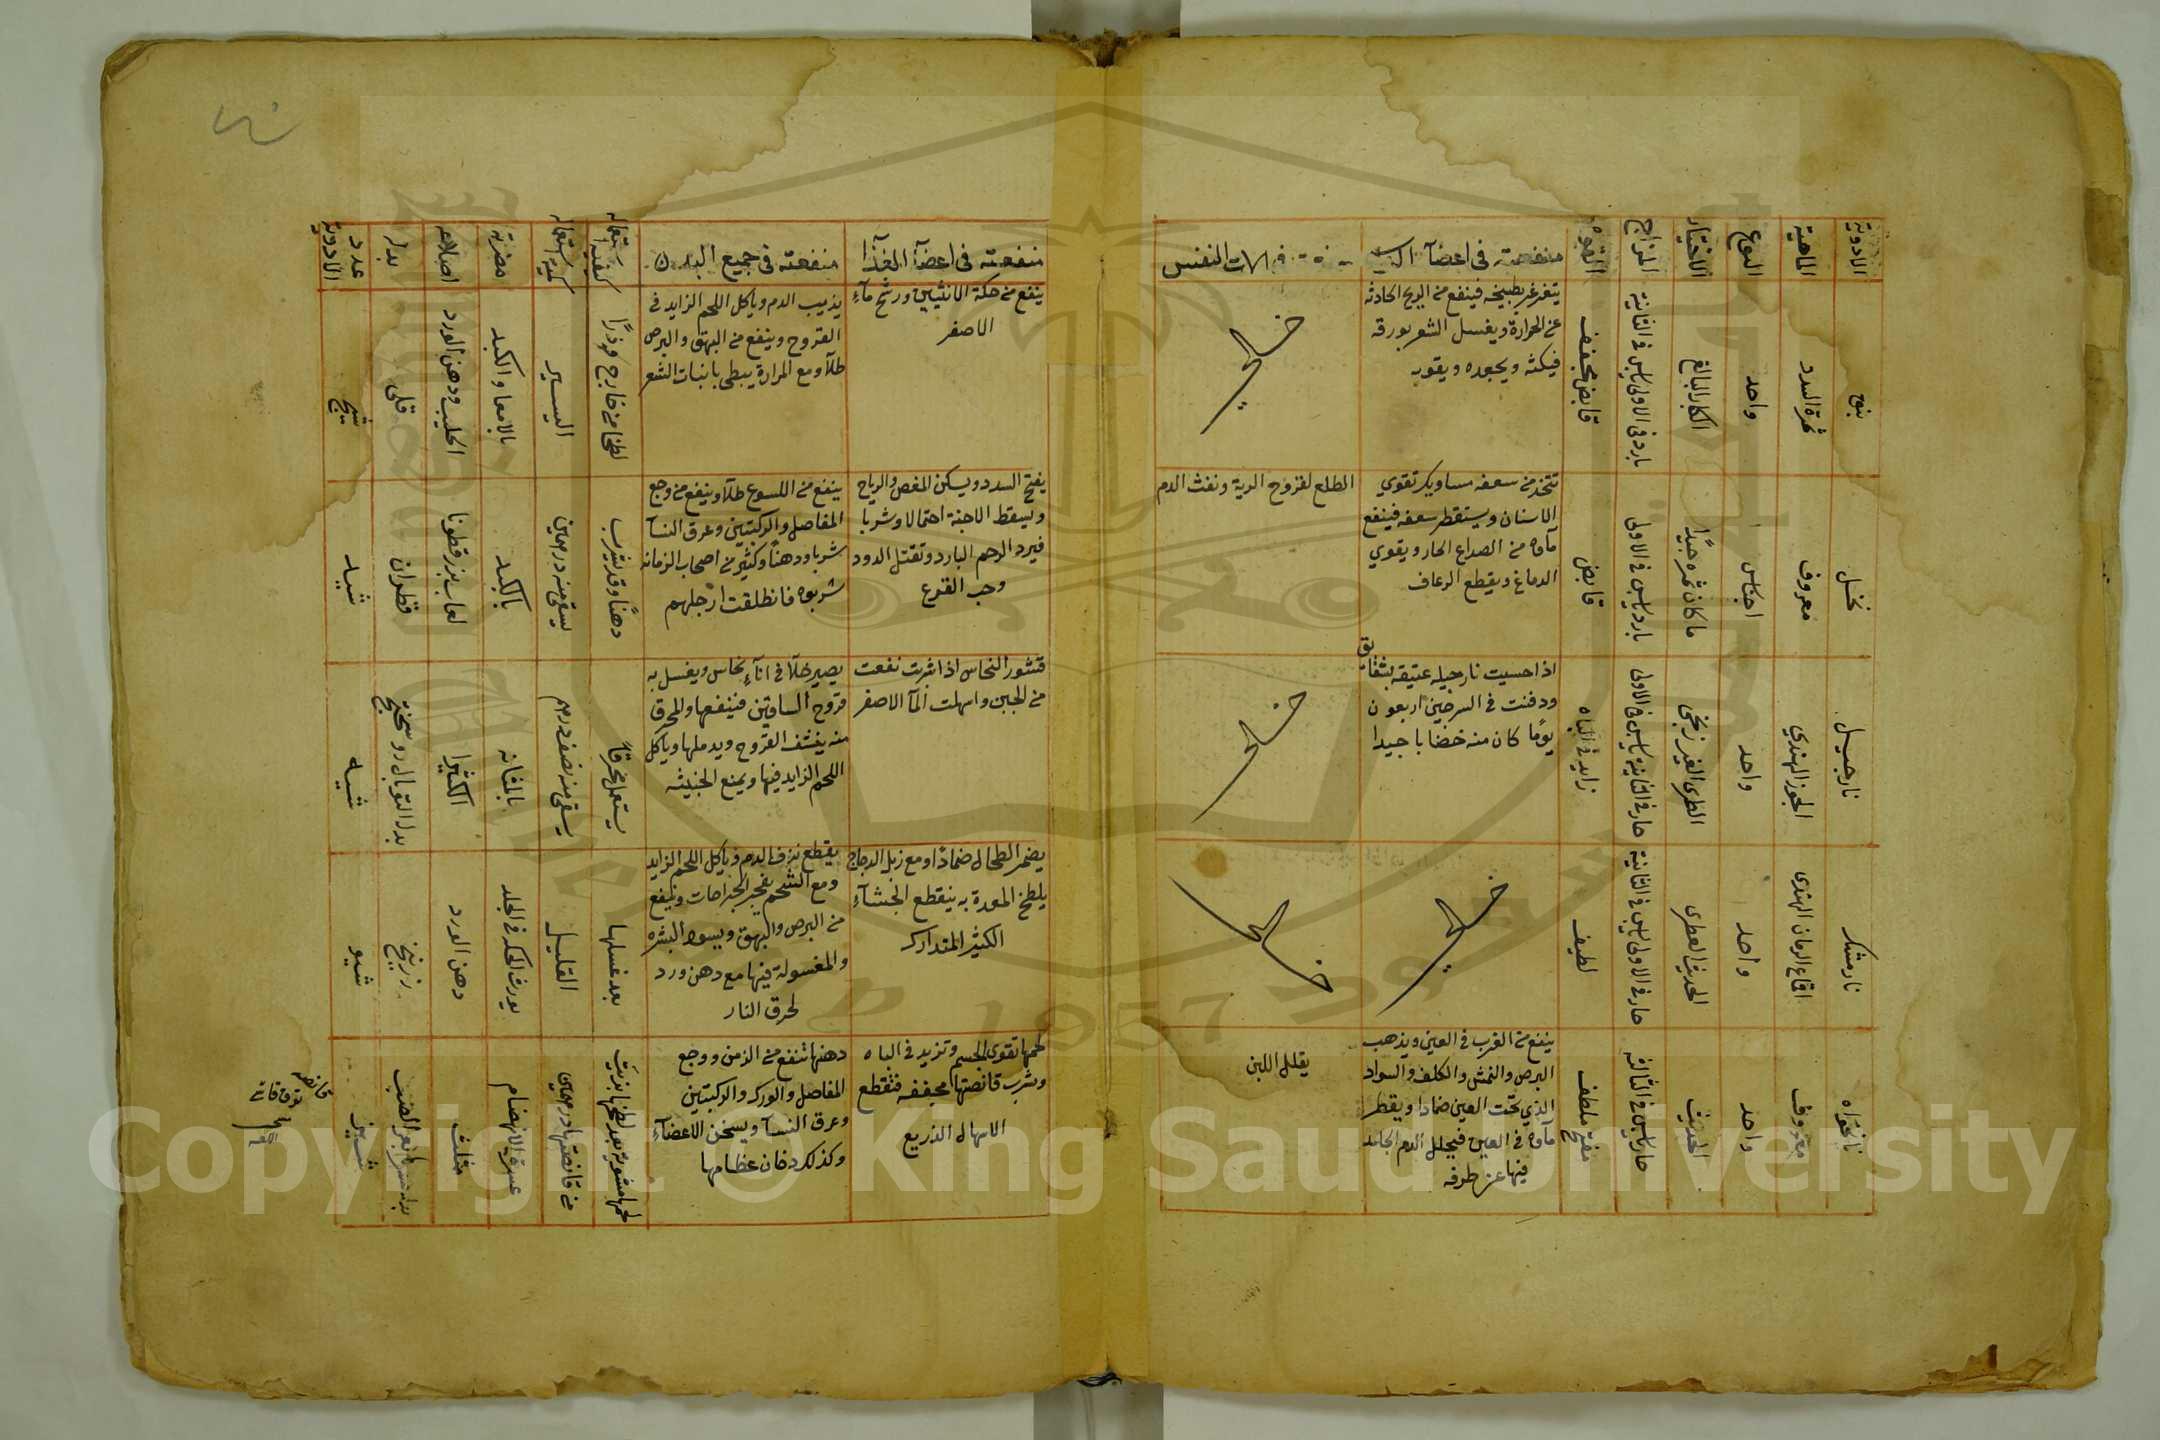 الادوية
الماهية
النوع
الاختيار
المزاج
القوة
منفعته في اعضآ الر
الات النفس
نبق
ثمرة السدر
واحد
الكبار البالغ
بارد في الاولى يابس في الثانية
قابض مجفف
يتغرغر بطبيخه فينفع من الريح الحادثه
عن الحرارة ويغسل الشعر بورقه
فيكثه ويجعده ويقويه
خالي
نخل
معروف
اجناس
ما كان ثمره جيدًا
بارد يابس في الاولى
قابض
تتخذ من سعفه مساويك تقوي
الاسنان ويستقطر سعفه فينفع
مآوه من الصداع الحار ويقوي
الدماغ ويقطع الرعاف
الطلع لقروح الرية ونفث الدم
نارجيل
الجوز الهندي
واحد
الطرى الغير زنخ
حار في الثانية يابس في الاولى
زايد في الباه
اذا حسيت نارجيله عتيقه
ودفنت في السرجين اربعون
يومًا كان منه خضابا جيدا
خالي
نارمشك
اقماع الرمان الهندى
واحد
الحديث العطرى
حار في الاولى يابس في الثانية
لطيف
خالي
خالي
نانخواه
معروف
واحد
الحديث
حار يابس في الثالثة
مفتح ملطف
ينفع من الغرب في العين ويذهب
البرص والنمش والكلف والسواد
الذي تحت العين ضمادا ويقطر
مآوه في العين فيحلل الدم الجامد
فيها عن طرفه
يقلل اللبن
منفعته في اعضآ الغذآ
منفعته في جميع البدن
كيفية استعماله
كمية استعماله
مضرته
اصلاحه
بدله
عدد الادوية
ينفع من حكة الانثيين ورشح مآء
الاصفر
يذيب الدم وياكل اللحم الزايد في
القروح وينفع من البهق والبرص
طلآء ومع المرارة يبطى بانبات الشعر
لطخا من خارج وذرًا
اليسير
بالامعا والكبد
الحليب ودهن الورد
قلى
شيج
يفتح السدد ويسكن المغص والرياح
ويسقط الاجنة احتمالا وشربا
فيرد الرحم البارد وتقتل الدود
وحب القرع
ينفع من اللسوع طلآء وينفع من وجع
المفاصل والركبتين وعرق النسآ
شربا ودهنًا وكثير من اصحاب الزمانه
شربوه فانطلقت ارجلهم
دهنًا وقد يشرب
يسقى منه درهمين
بالكبد
لعاب بزرقطونا
قطران
شيد
قشور النحاس اذا شربت نفعت
من الجبن واسهلت المآ الاصفر
يصير خلآ في انآء نحاس ويغسل به
قروح الساقين فينفعها والمحرق
منه ينشف القروح ويدملها وياكل
اللحم الزايد فيها ويمنع الخبيثه
يستعمل محرقًا
يسقى منه نصف درهم
بالمثانه
الكثيرا
بدله التوبال روسختج
شيه
يضمر الطحال ضمادًا ومع زبل الدجاج
يلطخ المعدة به ينقطع الجشآء
الكثير المتدارك
يقطع نزف الدم وياكل اللحم الزايد
ومع الشحم يفجر الجراحات وينفع
من البرص والبهق ويسود البشره
والمغسولة فيها مع دهن ورد
لحرق النار
بعد غسلها
القليل
يورث الحكه في الجلد
دهن الورد
زرنيخ
شيو
لحمها تقوى الجسم وتزيد في الباه
وشرب قانصتها مجففه فتقطع
الاسهال الذريع
دهنها تنفع من الزمن ووجع
المفاصل والورك والركبتين
وعرق النسآ ويسخن الاعضآء
وكذلك دخان عظامها
لحمها مشوية بعد لطخها بزيت
من قانصتها درهمين
عسرة الانهضام
مثلث
شيز
قانصه
Copyright © King Saud University
1957